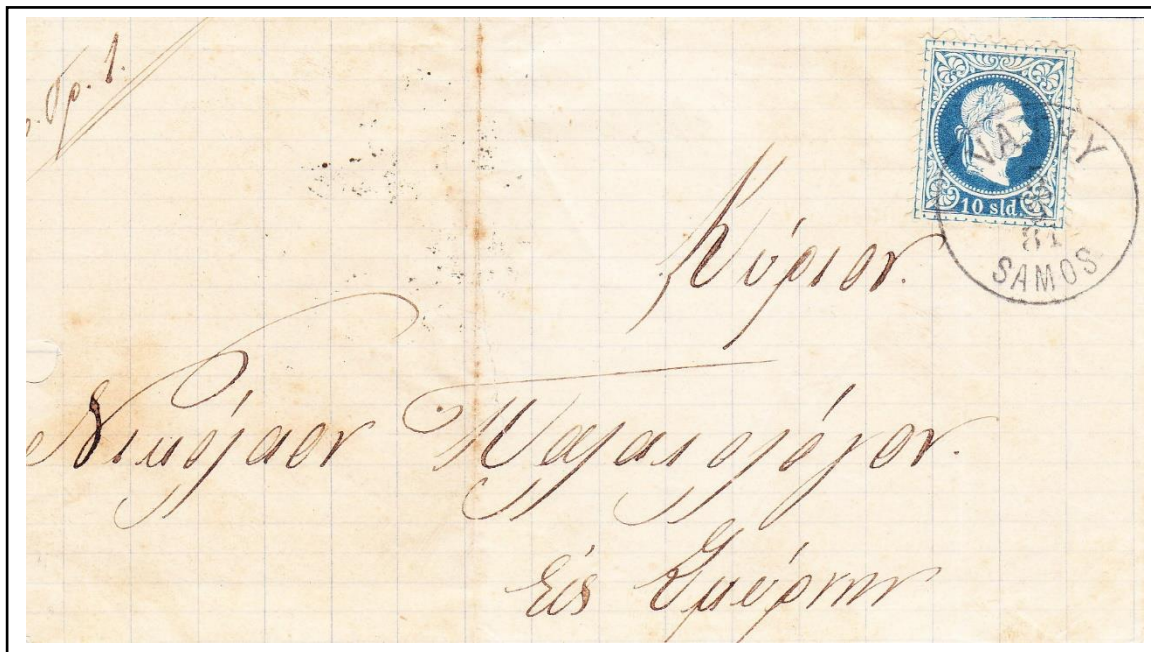 Γρ. 1.
10 sld.
VATHY
81
SAMOS
Κύριον.
Νικόλαον Παλαιολόγον.
εἰς Σμύρνην